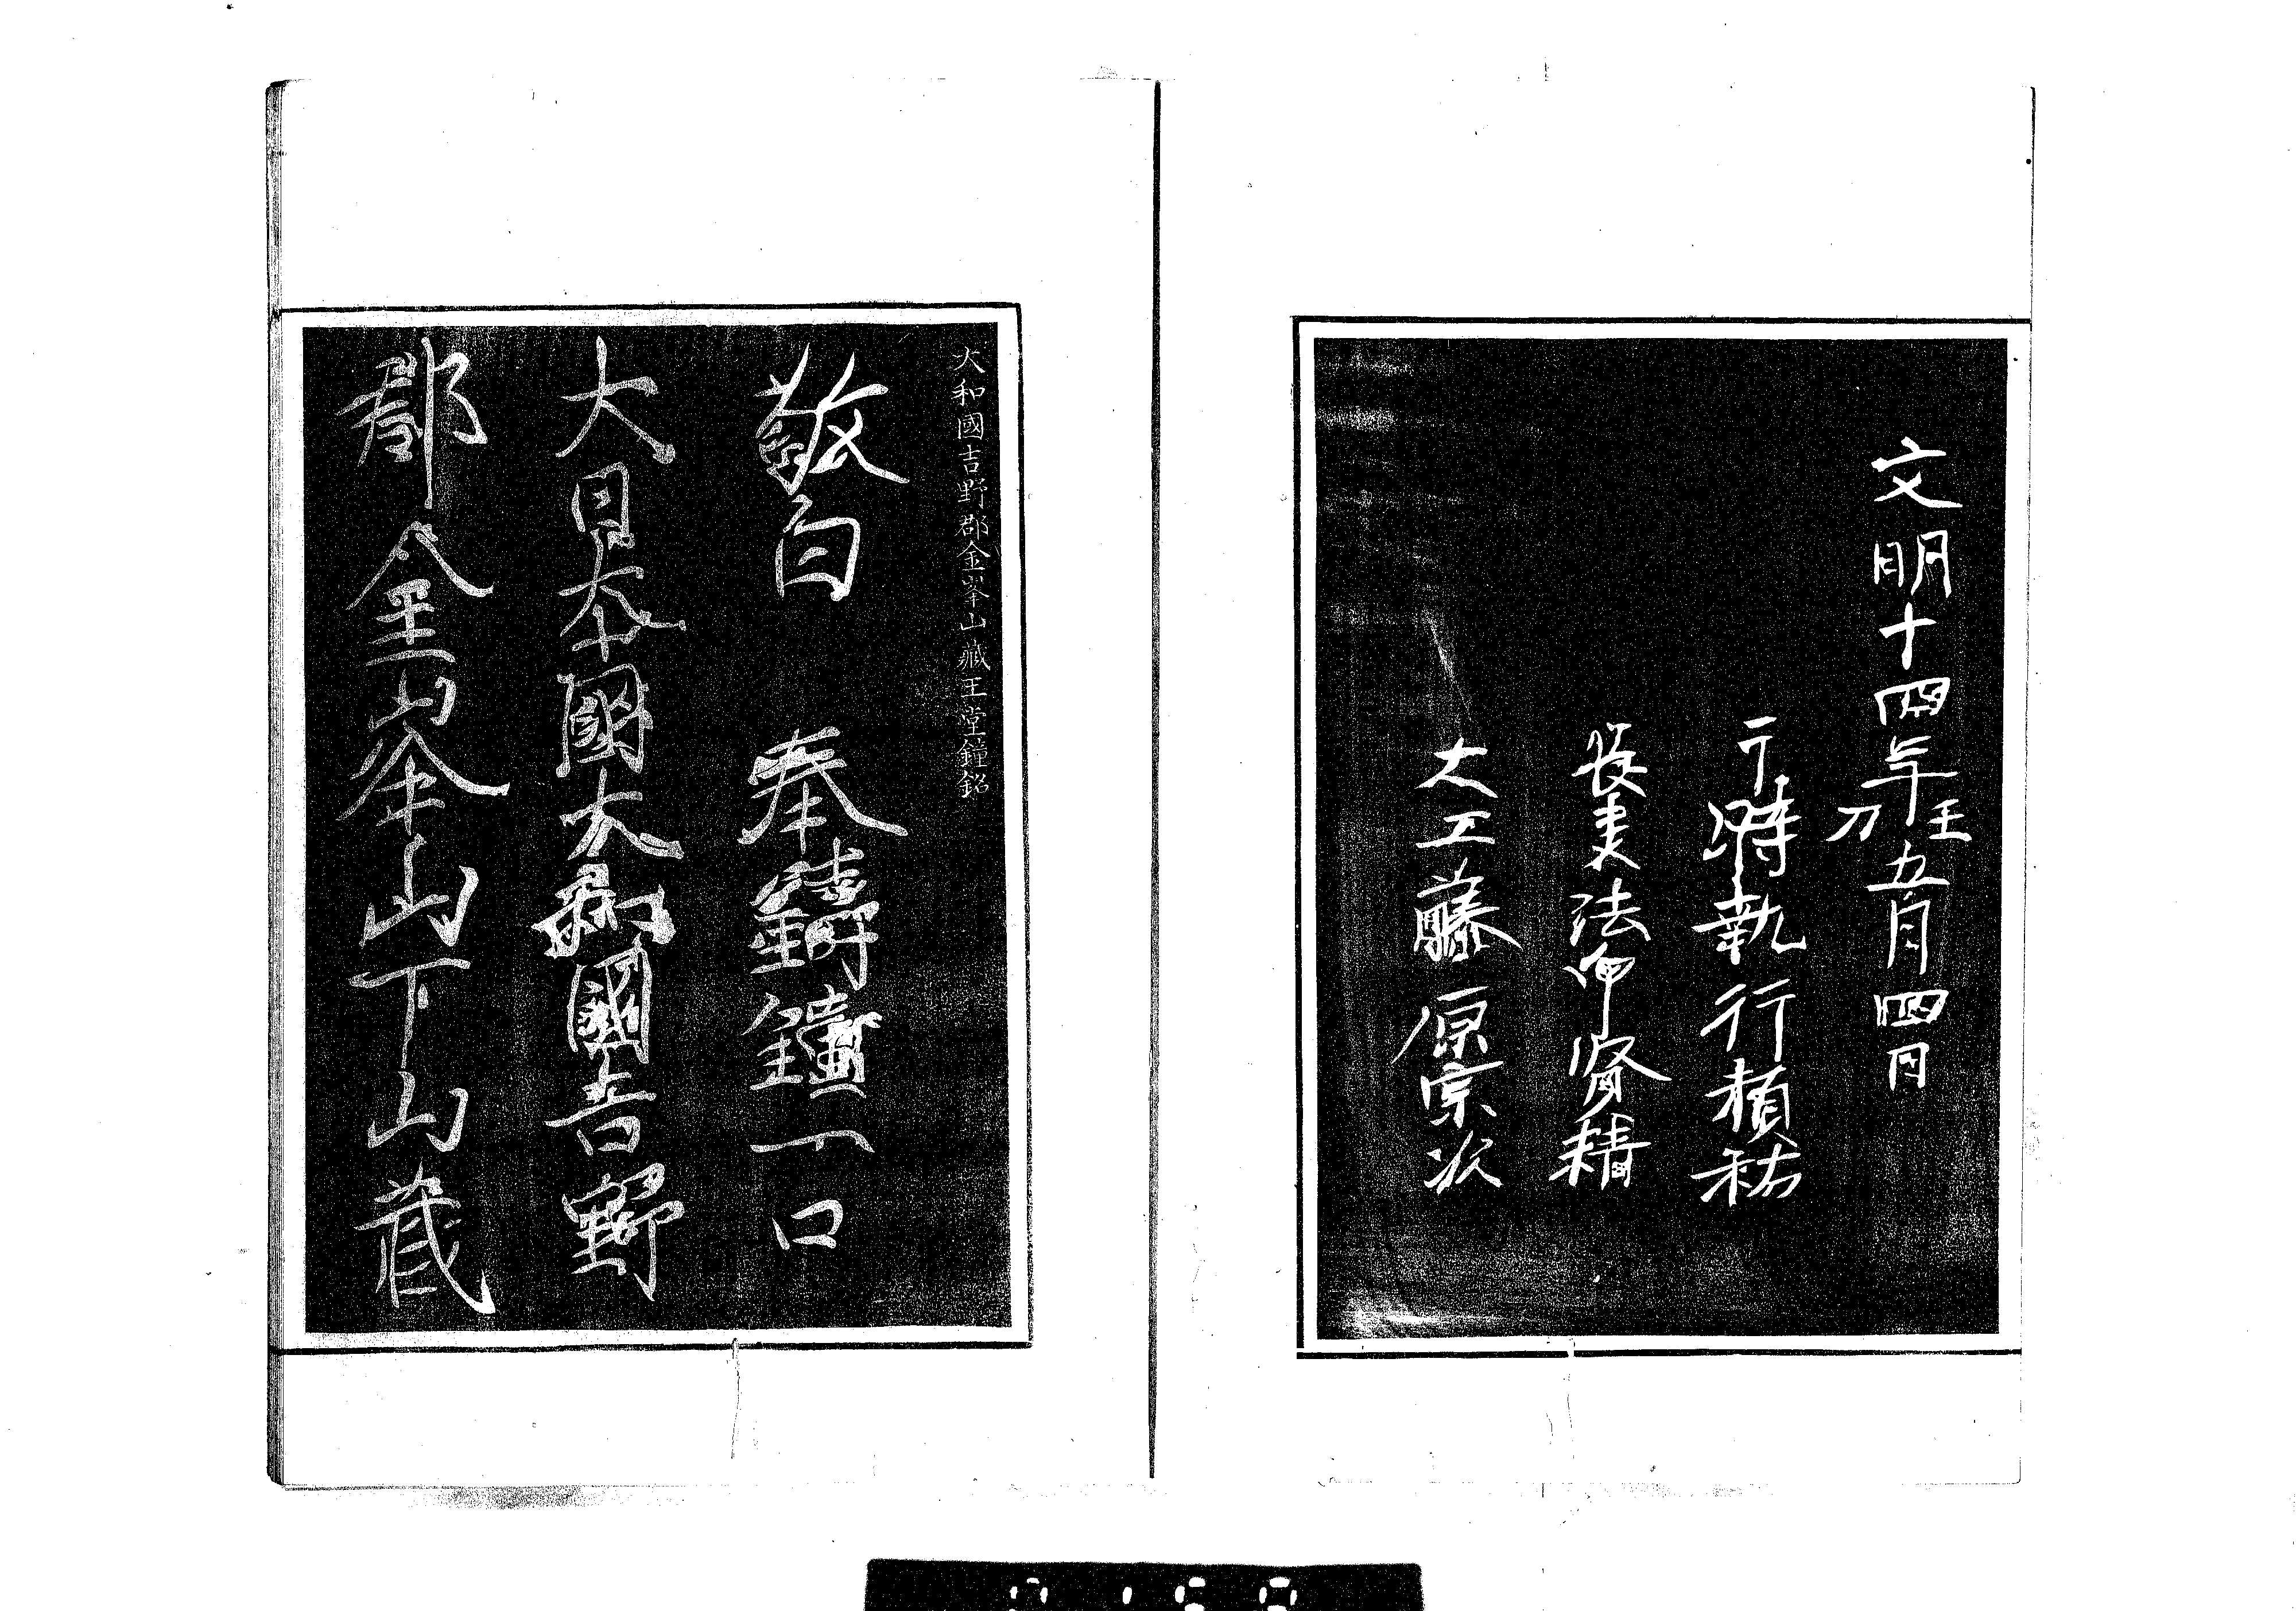 文明十四年壬刀五月四日
于時執行積祐
長吏法印賢精
大工藤原宗次
大和國吉野郡金峯山藏王堂鐘銘
敬白　奉鑄鐘一口
大日本國大和國吉野
郡金峯山下山蔵